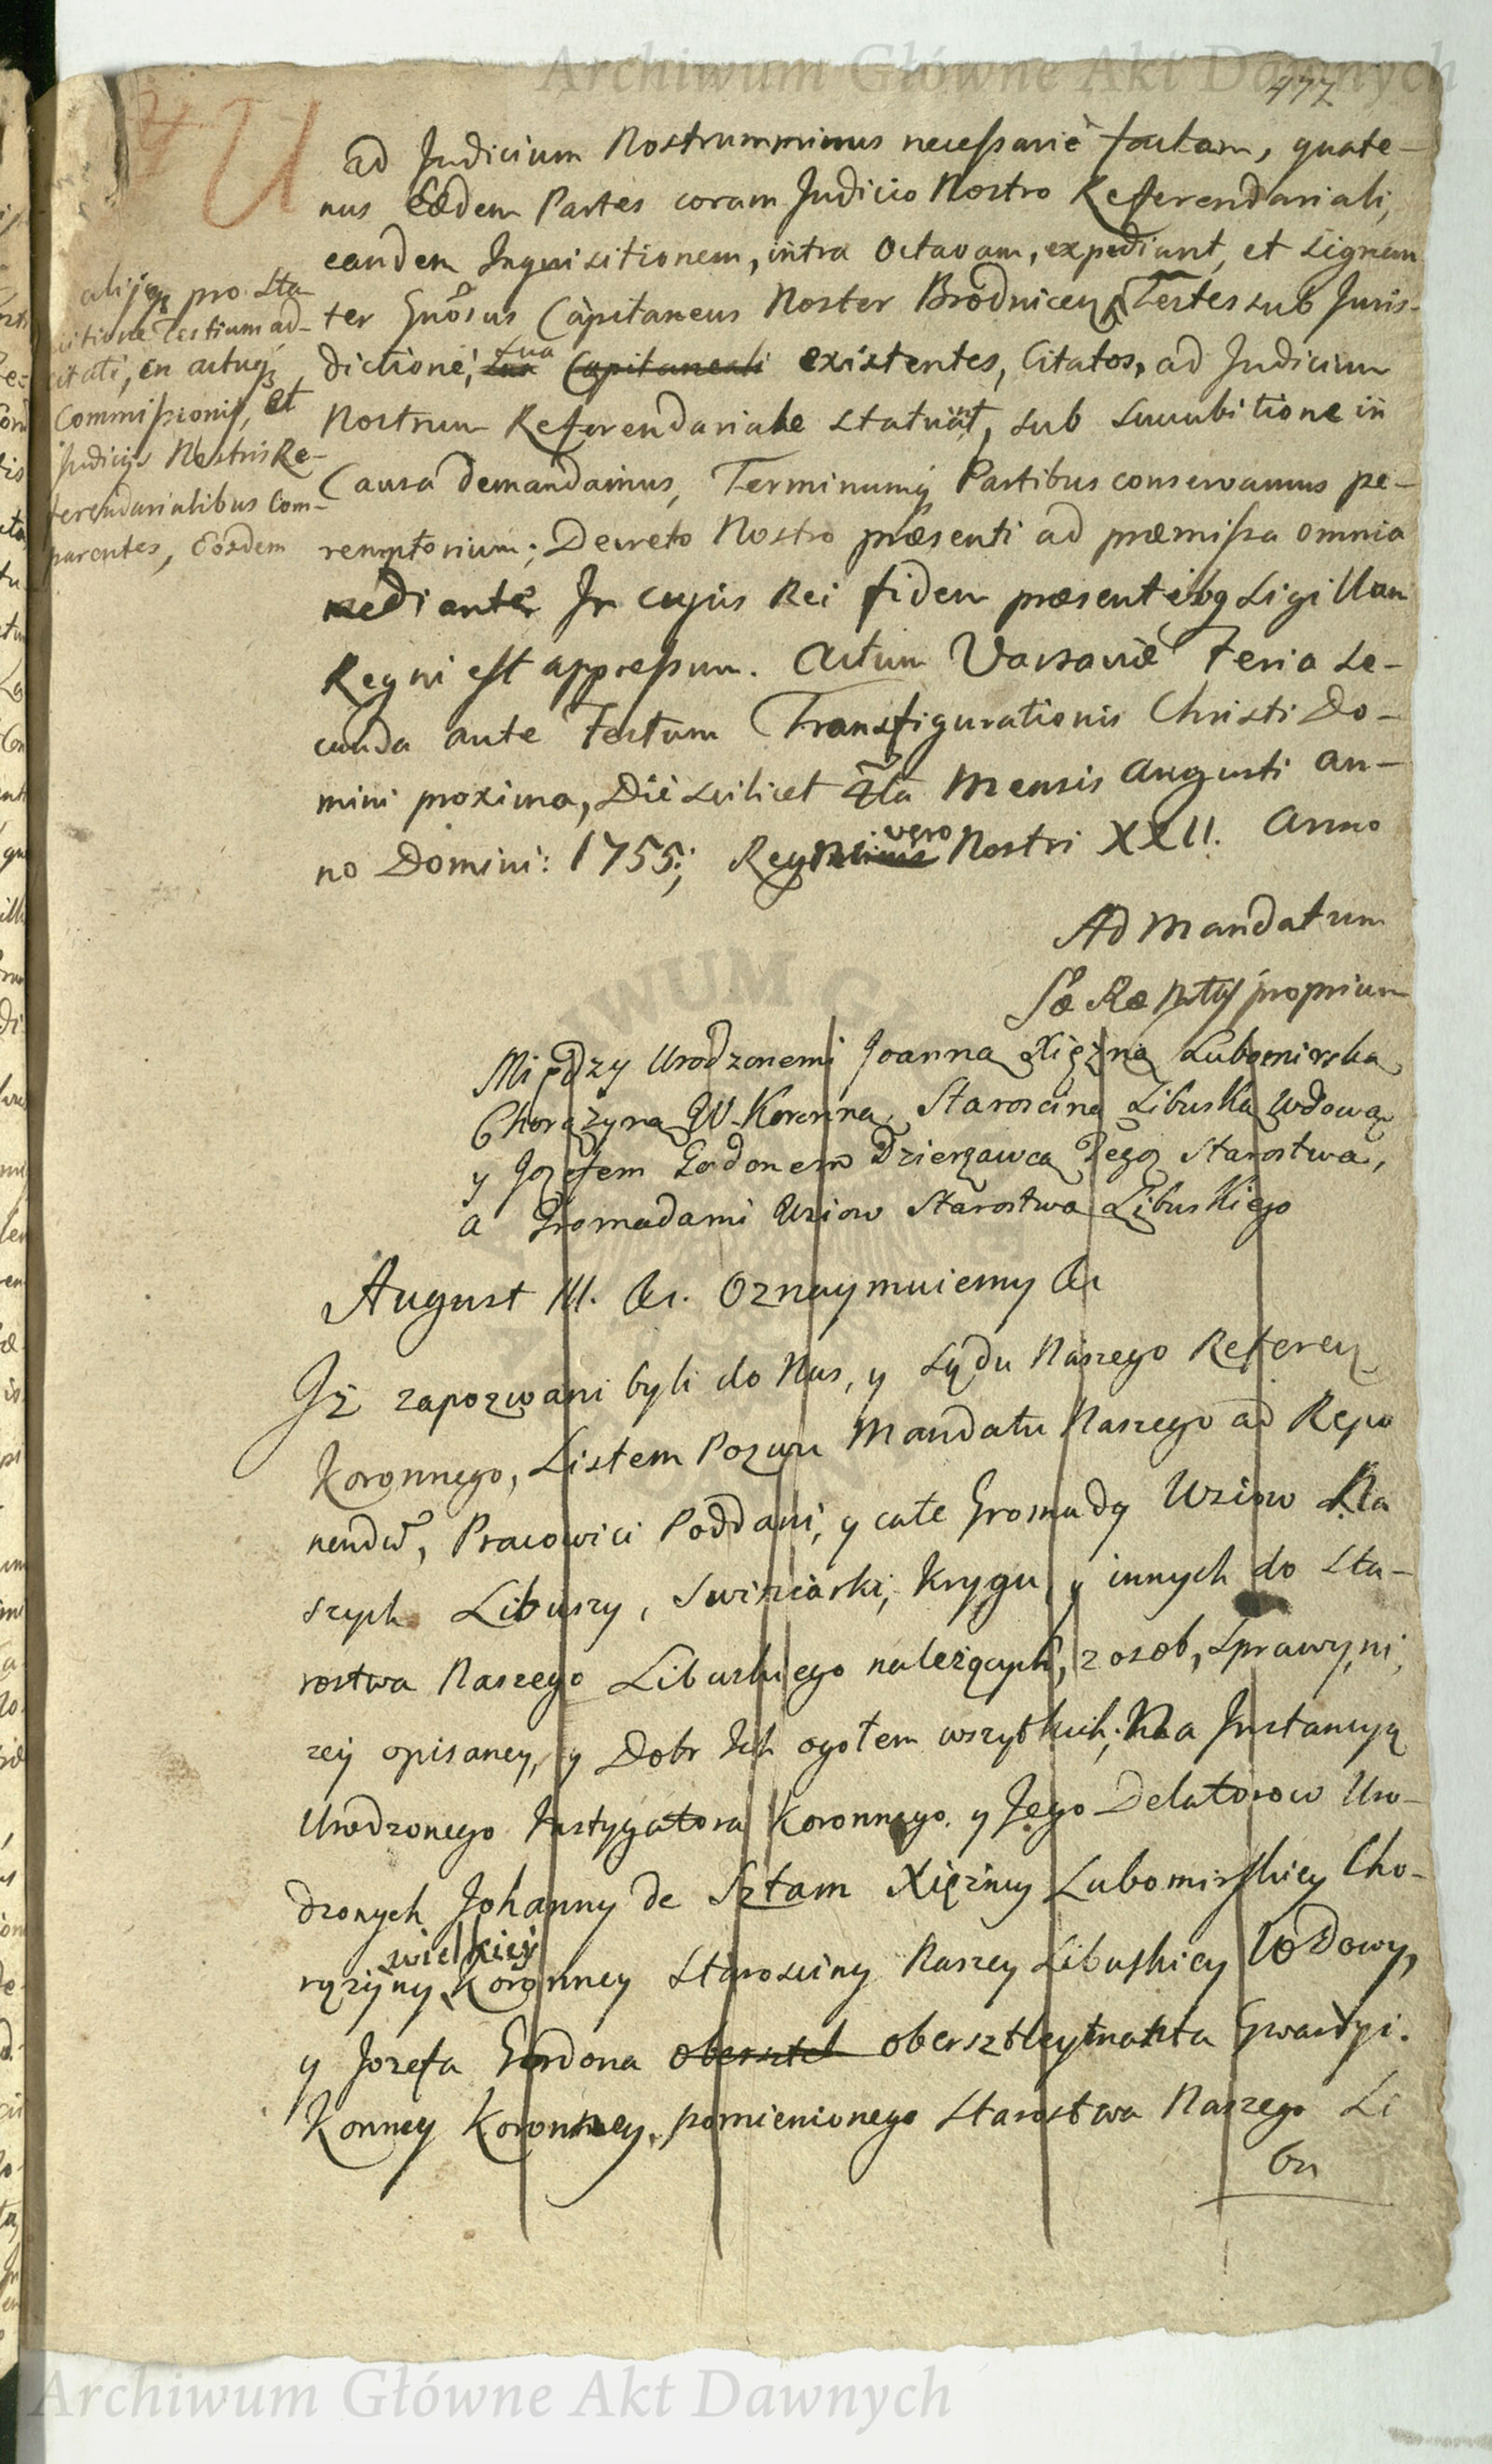 Archiwum Główne Akt Dawnych
477
ad Judicium Nostrum minus necessarie factam, quate-
nus Eædem Partes coram Judicio Nostro Referendariali,
eandem Inquisitionem, intra Octavam, expediant, et Signan
ter Gnosus Capitaneus Noster Brodnicen Testes sub Juris-
dictione, sua Capitaneali existentes, Citatos, ad Judicium
Nostrum Referendariale statuant, sub succubitione in
Causa demandamus, Terminumq Partibus conservamus pe-
remptorium; Decreto Nostro præsenti ad præmissa omnia
mediante In cujus Rei fidem præsentibq Sigillum
Regni est appressum. Actum Varsaviæ Feria Se-
cunda ante Festum Transfigurationis Christi Do-
mini proxima, Die scilicet 4ta Mensis Augusti An-
no Domini: 1755; Regni vero Nostri XXII. Anno
alijsq pro sta
citione Testium ad-
citati, en actuq
Commissionis, et
Judicijs Nostris Re-
ferendarialibus Com-
parentes, Eosdem
Ad Mandatum
Sæ Ræ Mttis proprium
Między Urodzonemi Joanną Xiężną Lubomirską
Chorążyną W. Koronną, Starosciną Libuską Wdową
y Jozefem Gordonem Dzierzawcą Tegoz Starostwa,
a Gromadami Wsiow Starostwa Libuskiego
August III. &c. Oznaymuiemy &c
Iż zapozwani byli do Nas, y Sądu Naszego Referen
Koronnego, Listem Pozwu Mandatu Naszego ad Repo
nendu, Pracowici Poddani, y całe Gromady Wsiow Na
szych Libuszy, Swirciarki, Krygu, y innych do Sta-
rostwa Naszego Libuskiego należących, z osob, Sprawy, ni,
zey opisaney, y Dobr Ich ogołem wszytkich; Na Instancyą
Urodzonego Instygatora Koronnego y Jego Delatorow Uro-
dzonych Johanny de Sztam Xiężney Lubomirskiey Cho-
rążyny wielkiey Koronney Starosciny Naszey Libuskiey Wdowy,
y Jozefa Gordona obersztel obersztleytnanta Gwardyi.
Konney Koronney, pomienionego Starostwa Naszego Li
bu
Archiwum Główne Akt Dawnych